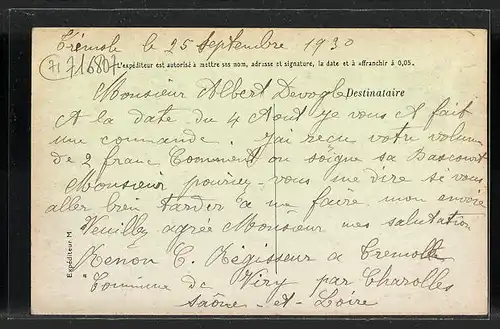 Trémole le 25 Septembre 1930
L'expéditeur est autorisé à mettre ses nom, adresse et signature, la date et à affranchir à 0,05.
71 716807
Monsieur Albert Devogle
Destinataire
A la date du 4 Aout je vous ai fait
une commande. j'ai recu votre volume
de 2 franc Comment on soigne sa Bascourt
Monsieur pouriez-vous me dire si vous
aller bien tarder a me faire mon envoie
Veuilley agrée Monsieur mes salutation
Renon C. Régisseur a Tremolle
Commune de Viry par Charolles
Saône-et-Loire
Expéditeur M